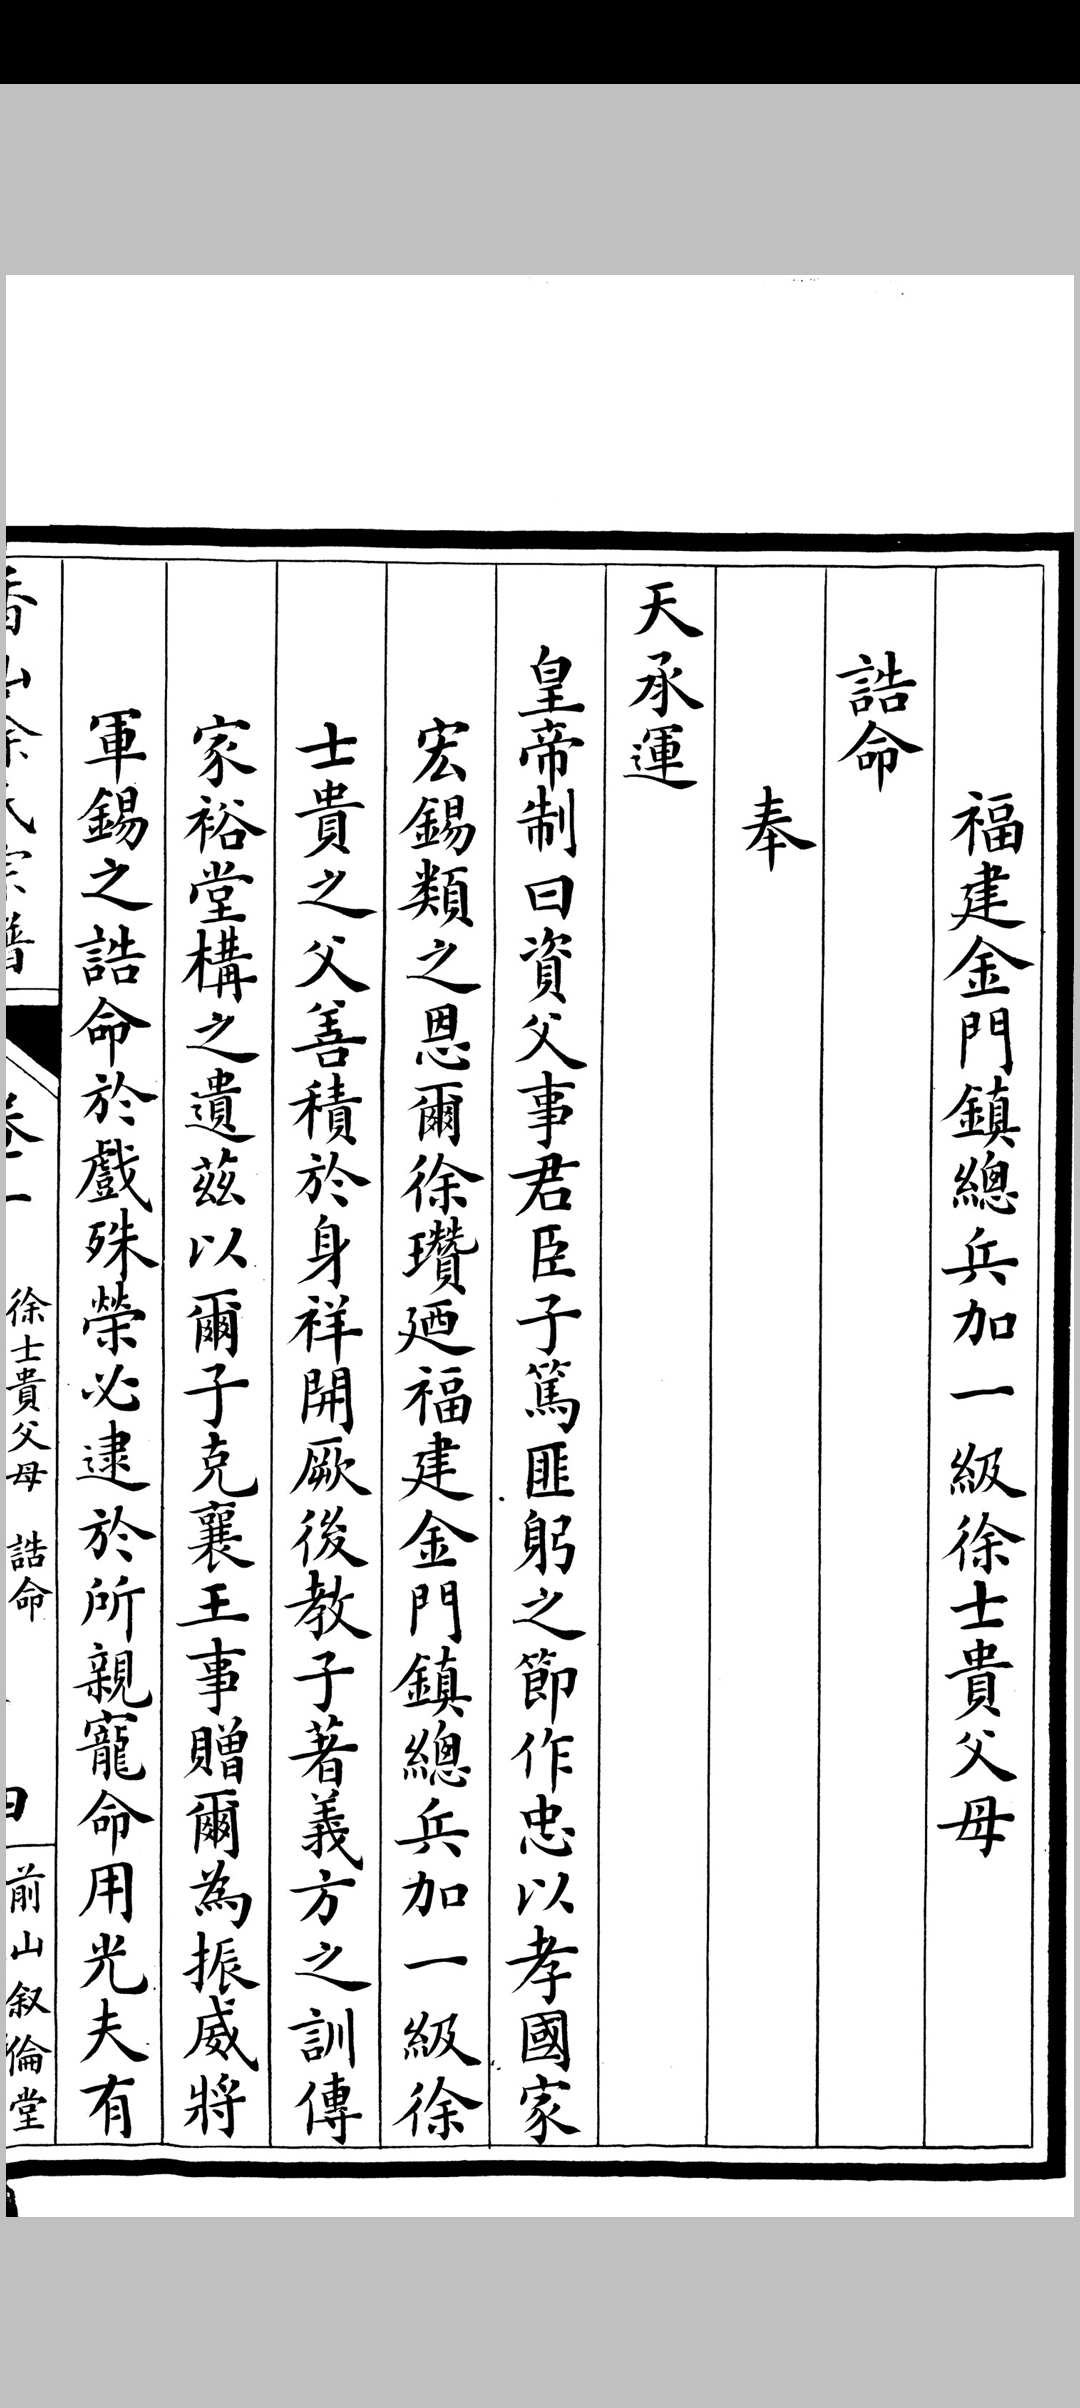 福建金門鎮總兵加一級徐士貴父母
誥命
奉
天承運
皇帝制曰資父事君臣子篤匪躬之節作忠以孝國家
宏錫類之恩爾徐瓚廼福建金門鎮總兵加一級徐
士貴之父善積於身祥開厥後教子著義方之訓傳
家裕堂構之遺茲以爾子克襄王事贈爾為振威將
軍錫之誥命於戲殊榮必逮於所親寵命用光夫有
香山徐氏宗譜
卷一
徐士貴父母 誥命
前山叙倫堂